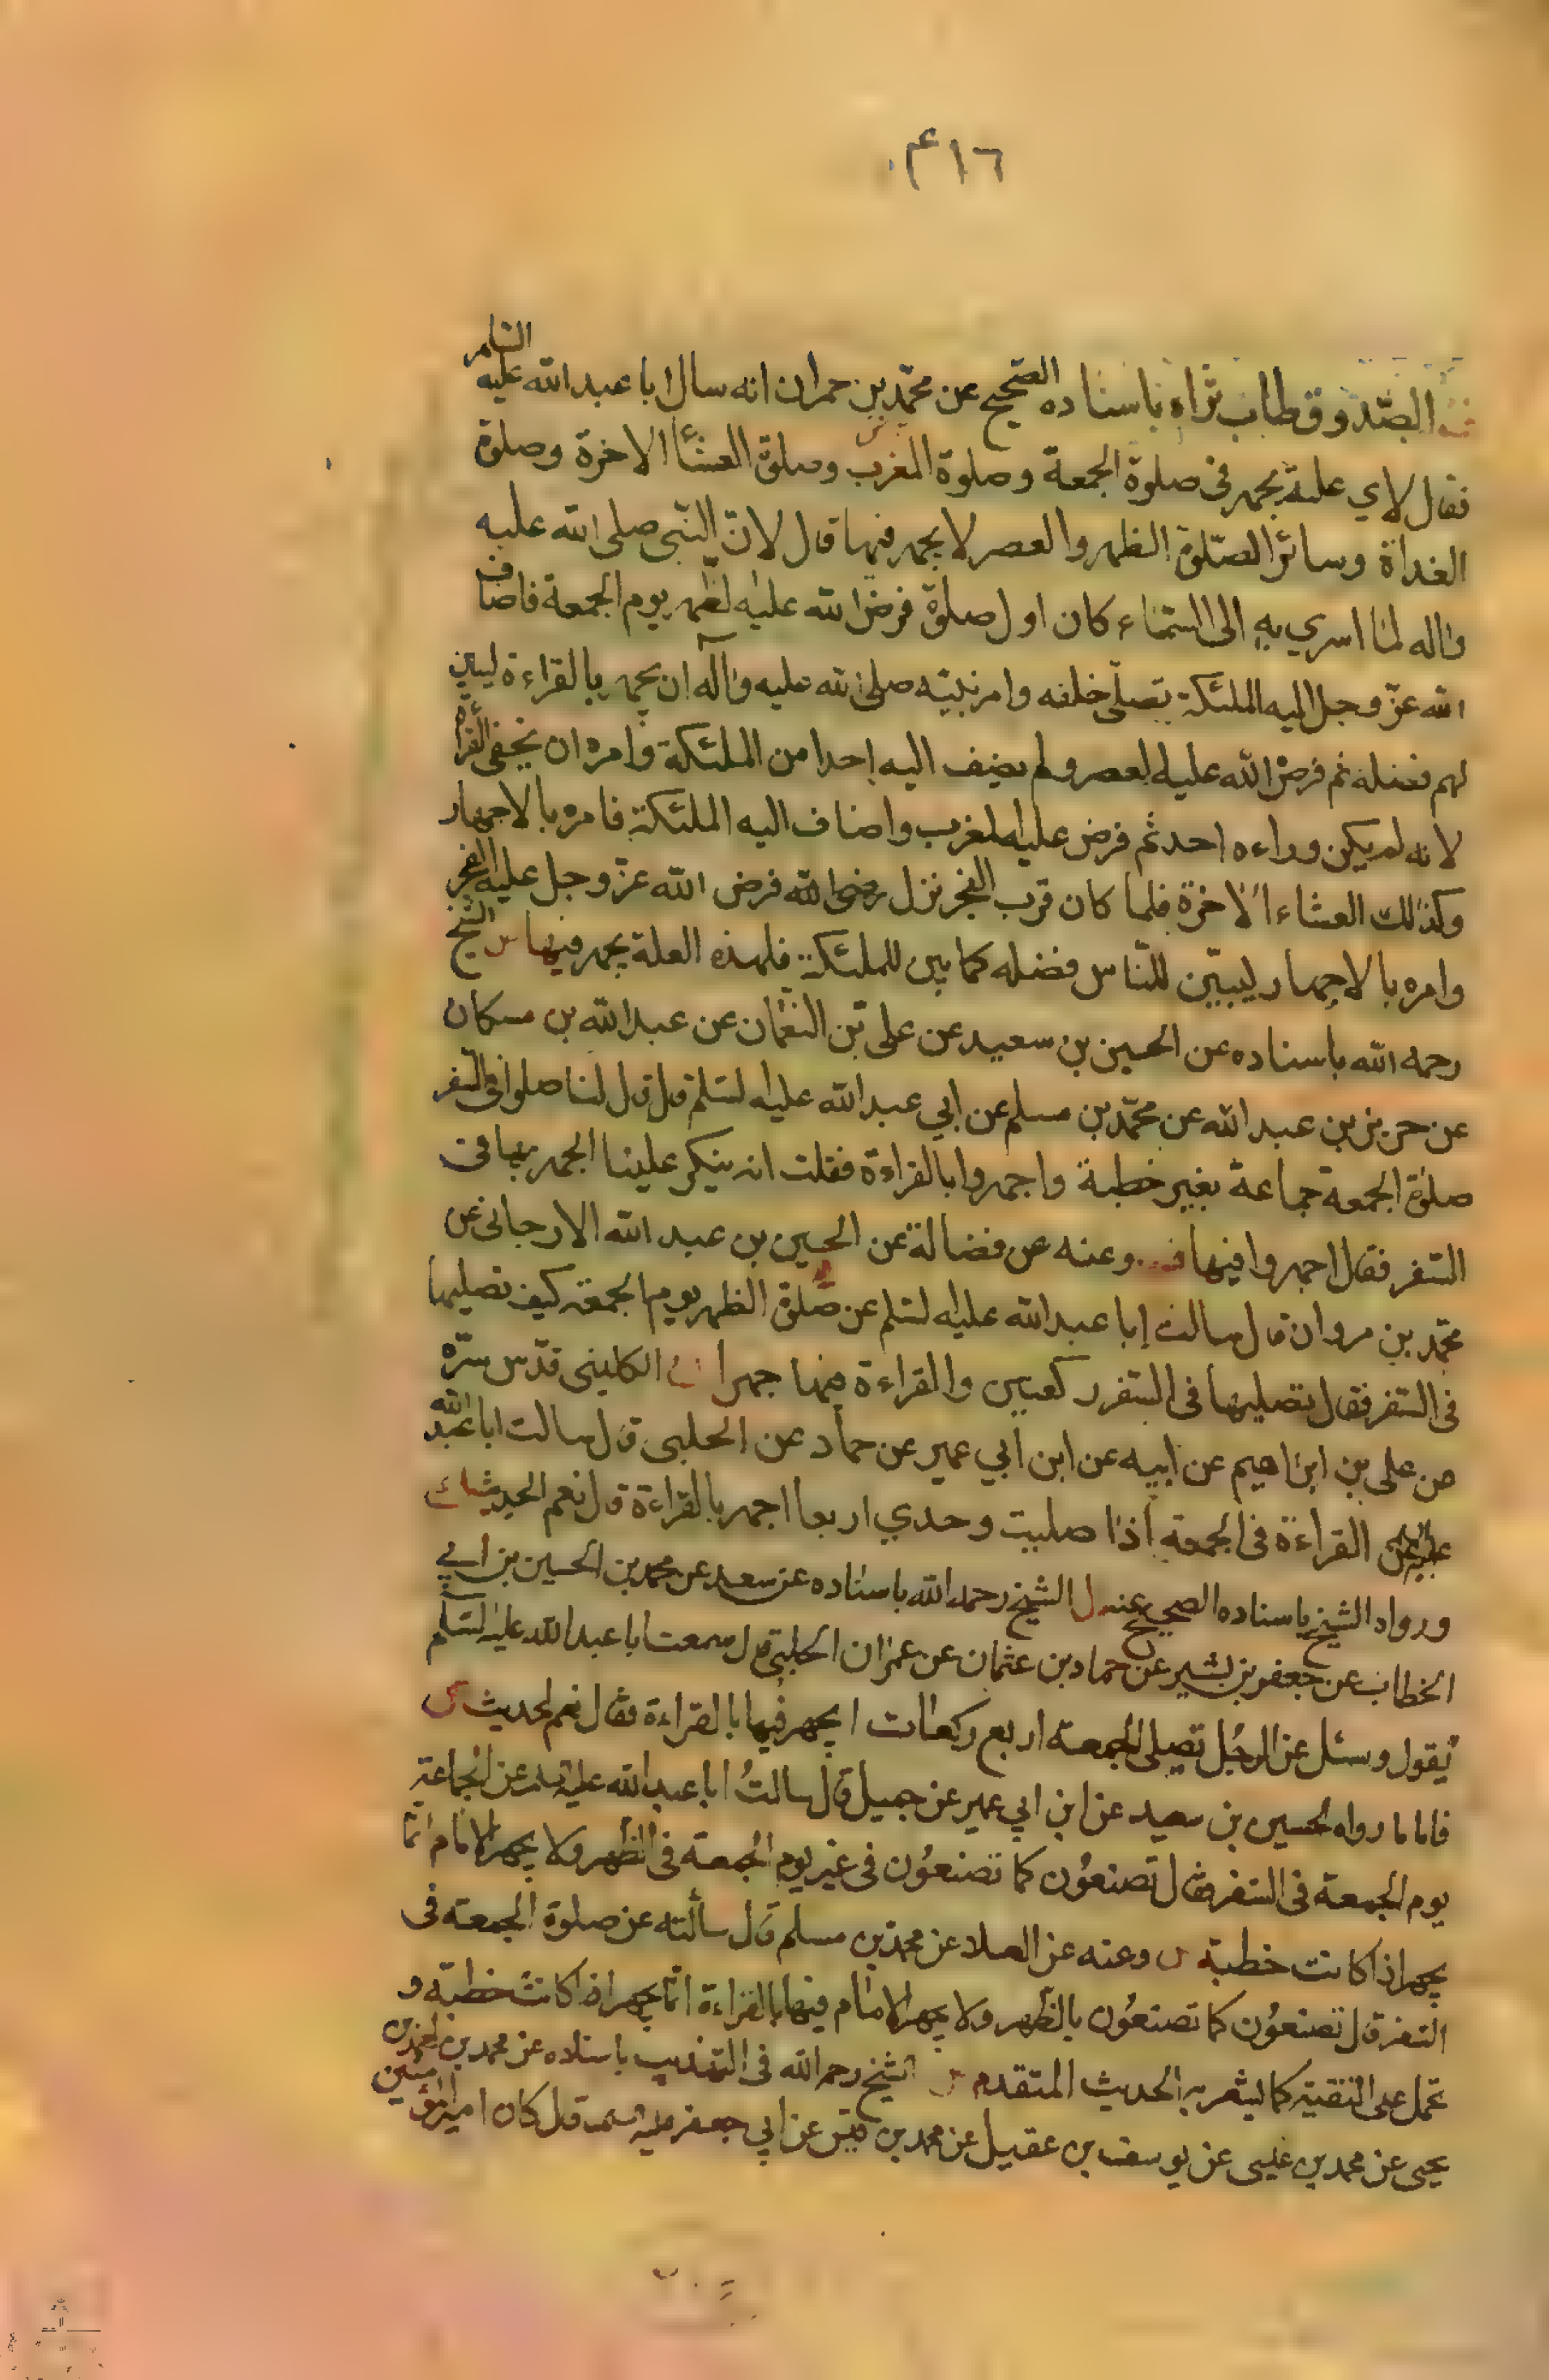 ٤١٦
الصّدوق طاب ثراه باسناده الصحيح عن محمّد بن حمران انه سال ابا عبد الله عليه السلام
فقال لاي علة يجهر فى صلوة الجمعة وصلوة المغرب وصلوة العشاء الاخرة وصلوة
الغداة وسائر الصّلوة الظهر والعصر لا يجهر فيها قال لانّ النّبى صلى الله عليه
واله لمّا اسري به الى السّماء كان اول صلوة فرض الله عليه لظّهر يوم الجمعة فاضاف
الله عزّ وجل اليه الملئكة تصلّى خلفه وامر نبيّه صلى الله عليه وآله ان يجهر بالقراءة ليبين
لهم فضله ثم فرض الله عليه العصر ولم يضف اليه احدا من الملئكة وامره ان يخفى القراءة
لانه لم يكن وراءه احد ثم فرض عليه المغرب واضاف اليه الملئكة فامره بالاجهار
وكذلك العشاء الاخرة فلما كان قرب الفجر نزل ففرض الله عزّ وجل عليه الفجر
وامره بالاجهار ليبيّن للنّاس فضله كما بين للملئكة فلهذه العلة يجهر فيها الشيخ
رحمه الله باسناده عن الحسين بن سعيد عن على بن النعمان عن عبد الله بن مسكان
عن حريز بن عبد الله عن محمّد بن مسلم عن ابي عبد الله عليه لسّلم قال قال لنا صلوا فى السّفر
صلوة الجمعة جماعة بغير خطبة واجهروا بالقراءة فقلت انه ينكر علينا الجهر بها فى
السّفر فقال اجهروا فيها وعنه عن فضالة عن الحسين بن عبد الله الارجانى عن
محمّد بن مروان قال سالت ابا عبد الله عليه لسّلم عن صلوة الظهر يوم الجمعة كيف نصليها
فى السّفر فقال تصليها فى السّفر ركعتين والقراءة فيها جهرا الكلينى قدّس سرّه
عن على بن ابراهيم عن ابيه عن ابن ابي عمير عن حماد عن الحلبى قال سالت ابا عبد الله
عن القراءة فى الجمعة اذا صليت وحدي اربعا اجهر بالقراءة قال نعم الحديث
ورواه الشيخ باسناده الصحيح عنه الشيخ رحمه الله باسناده عن سعد عن محمد بن الحسين بن ابي
الخطاب عن جعفر بن بشير عن حماد بن عثمان عن عمران الحلبى قال سمعت ابا عبد الله عليه لسّلم
يقول وسئل عن الرجُل يصلى الجمعة اربع ركعات ايجهر فيها بالقراءة فقال نعم الحديث
فاما ما رواه الحسين بن سعيد عن ابن ابي عمير عن جميل قال سالتُ ابا عبد الله عليه السلم عن الجماعة
يوم الجمعة فى السّفر فقال تصنعُون كما تصنعُون فى غير يوم الجمعة فى الظهر ولا يجهر الامام انما
يجهر اذا كانت خطبة وعنه عن العلاء عن محمد بن مسلم قال سألته عن صلوة الجمعة فى
السّفر قال تصنعُون كما تصنعُون بالظهر ولا يجهر الامام فيها بالقراءة انما يجهر اذا كانت خطبة و
تحمل على التقيّة كما يشعر به الحديث المتقدم الشيخ رحمه الله فى التهذيب باسناده عن محمد بن احمد بن
يحيى عن محمد بن عيسى عن يوسف بن عقيل عن محمد بن قيس عن ابي جعفر عليه السلم قال كان امير المؤمنين